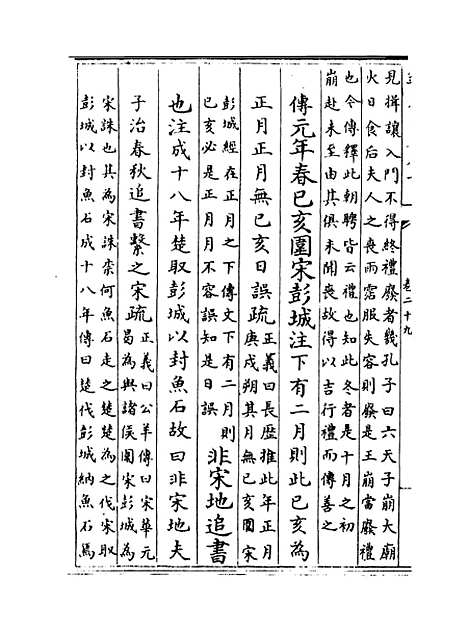 見揖讓入門不得終禮廢者幾孔子曰六天子崩大廟
火日食后夫人之喪雨霑服失容則廢是王崩當廢禮
也今傳釋此朝聘皆云禮也知此冬者是十月之初
崩赴未至由其俱未聞喪故得以吉行禮而傳善之
傳元年春已亥圍宋彭城注下有二月則此已亥為
正月正月無已亥日誤疏
正義曰長歷推此年正月
庚戌朔其月無已亥圍宋
彭城經在正月之下傳文下有二月則
已亥必是正月月不容誤知是日誤
非宋地追書
也注成十八年楚取彭城以封魚石故曰非宋地夫
子治春秋追書繫之宋疏
正義曰公羊傳曰宋華元
曷為與諸侯圍宋彭城為
宋誅也其為宋誅柰何魚石走之楚楚為之伐宋取
彭城以封魚石成十八年傳曰楚伐彭城納魚石焉
卷二十九